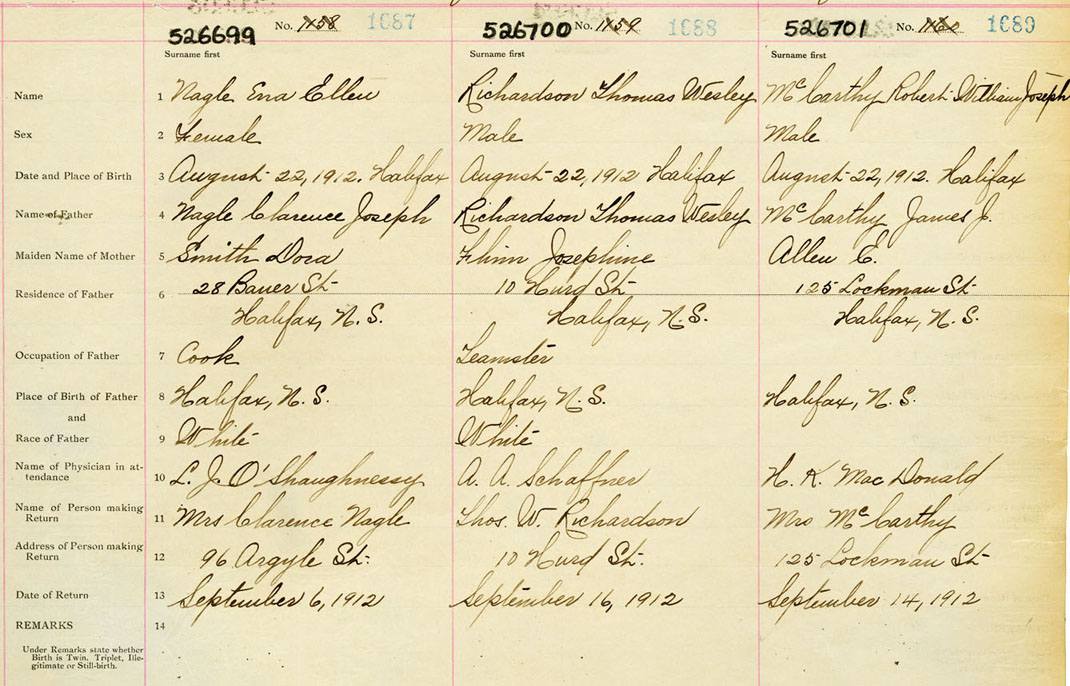 526699 No. 1158 1087 526700 No. 1159 1088 526701 No. 1160 1089
Surname first Surname first Surname first
Name 1 Nagle Ena Ellen Richardson Thomas Wesley McCarthy Robert William Joseph
Sex 2 Female Male Male
Date and Place of Birth 3 August 22, 1912. Halifax August 22, 1912 Halifax August 22, 1912. Halifax
Name of Father 4 Nagle Clarence Joseph Richardson Thomas Wesley McCarthy James J.
Maiden Name of Mother 5 Smith Dora Flinn Josephine Allen E.
28 Bauer St. 10 Hurd St. 125 Lockman St.
Residence of Father 6
Halifax, N.S. Halifax, N.S. Halifax, N.S.
Occupation of Father 7 Cook Teamster
Place of Birth of Father 8 Halifax, N.S. Halifax, N.S. Halifax, N.S.
and
Race of Father 9 White White
Name of Physician in at-
tendance 10 L. J. O'Shaughnessy A. A. Schaffner H. K. MacDonald
Name of Person making
Return 11 Mrs Clarence Nagle Thos. W. Richardson Mrs McCarthy
Address of Person making
Return 12 96 Argyle St. 10 Hurd St. 125 Lockman St.
Date of Return 13 September 6, 1912 September 16, 1912 September 14, 1912
REMARKS 14
Under Remarks state whether
Birth is Twin. Triplet, Ille-
gitimate or Still-birth.